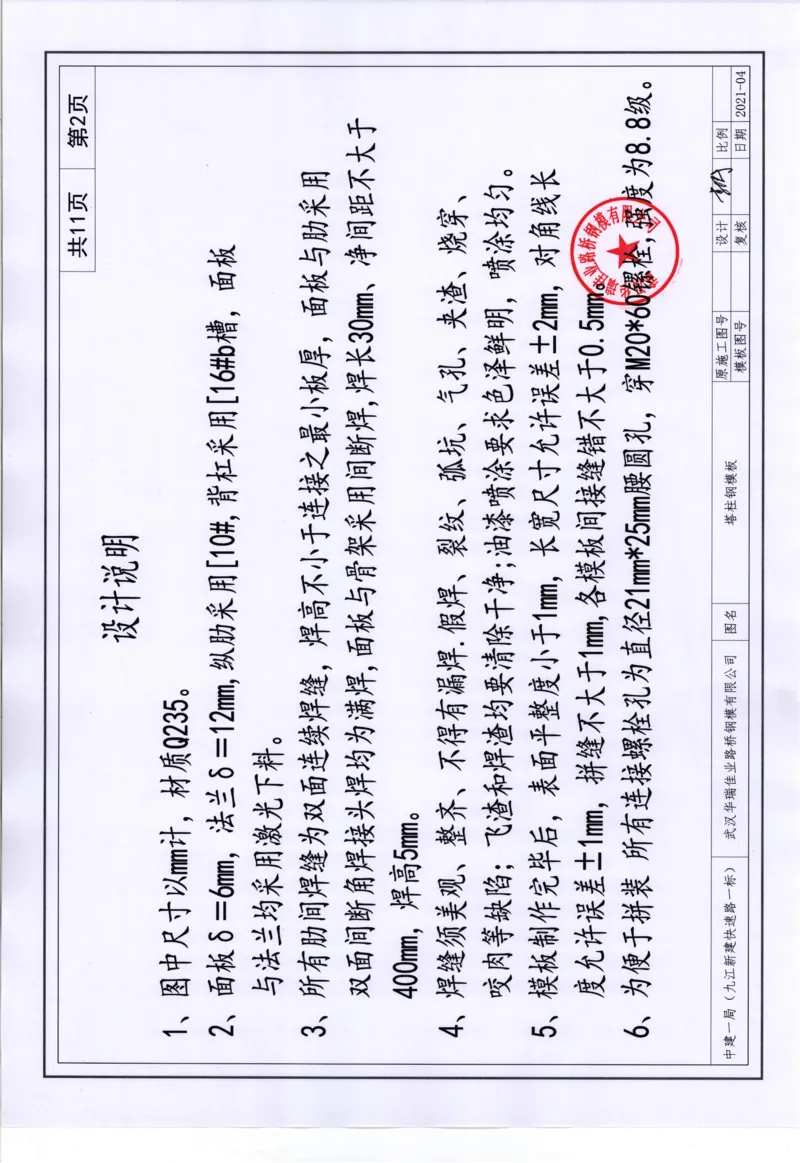 共11页 第2页
设计说明
1、图中尺寸以mm计，材质Q235。
2、面板δ=6mm，法兰δ=12mm,纵肋采用[10#,背杠采用[16#b槽，面板
与法兰均采用激光下料。
3、所有肋间焊缝为双面连续焊缝，焊高不小于连接之最小板厚，面板与肋采用
双面间断角焊接头焊均为满焊,面板与骨架采用间断焊,焊长30mm、净间距不大于
400mm，焊高5mm。
4、焊缝须美观、整齐、不得有漏焊.假焊、裂纹、弧坑、气孔、夹渣、烧穿、
咬肉等缺陷；飞渣和焊渣均要清除干净;油漆喷涂要求色泽鲜明，喷涂均匀。
5、模板制作完毕后，表面平整度小于1mm，长宽尺寸允许误差±2mm，对角线长
度允许误差±1mm，拼缝不大于1mm,各模板间接缝错不大于0.5mm。
6、为便于拼装 所有连接螺栓孔为直径21mm*25mm腰圆孔，穿M20*60螺栓,强度为8.8级。
中建一局（九江新建快速路一标） 武汉华瑞佳业路桥钢模有限公司 图名 塔柱钢模板
原施工图号 设计 比例
模板图号 复核 日期 2021-04